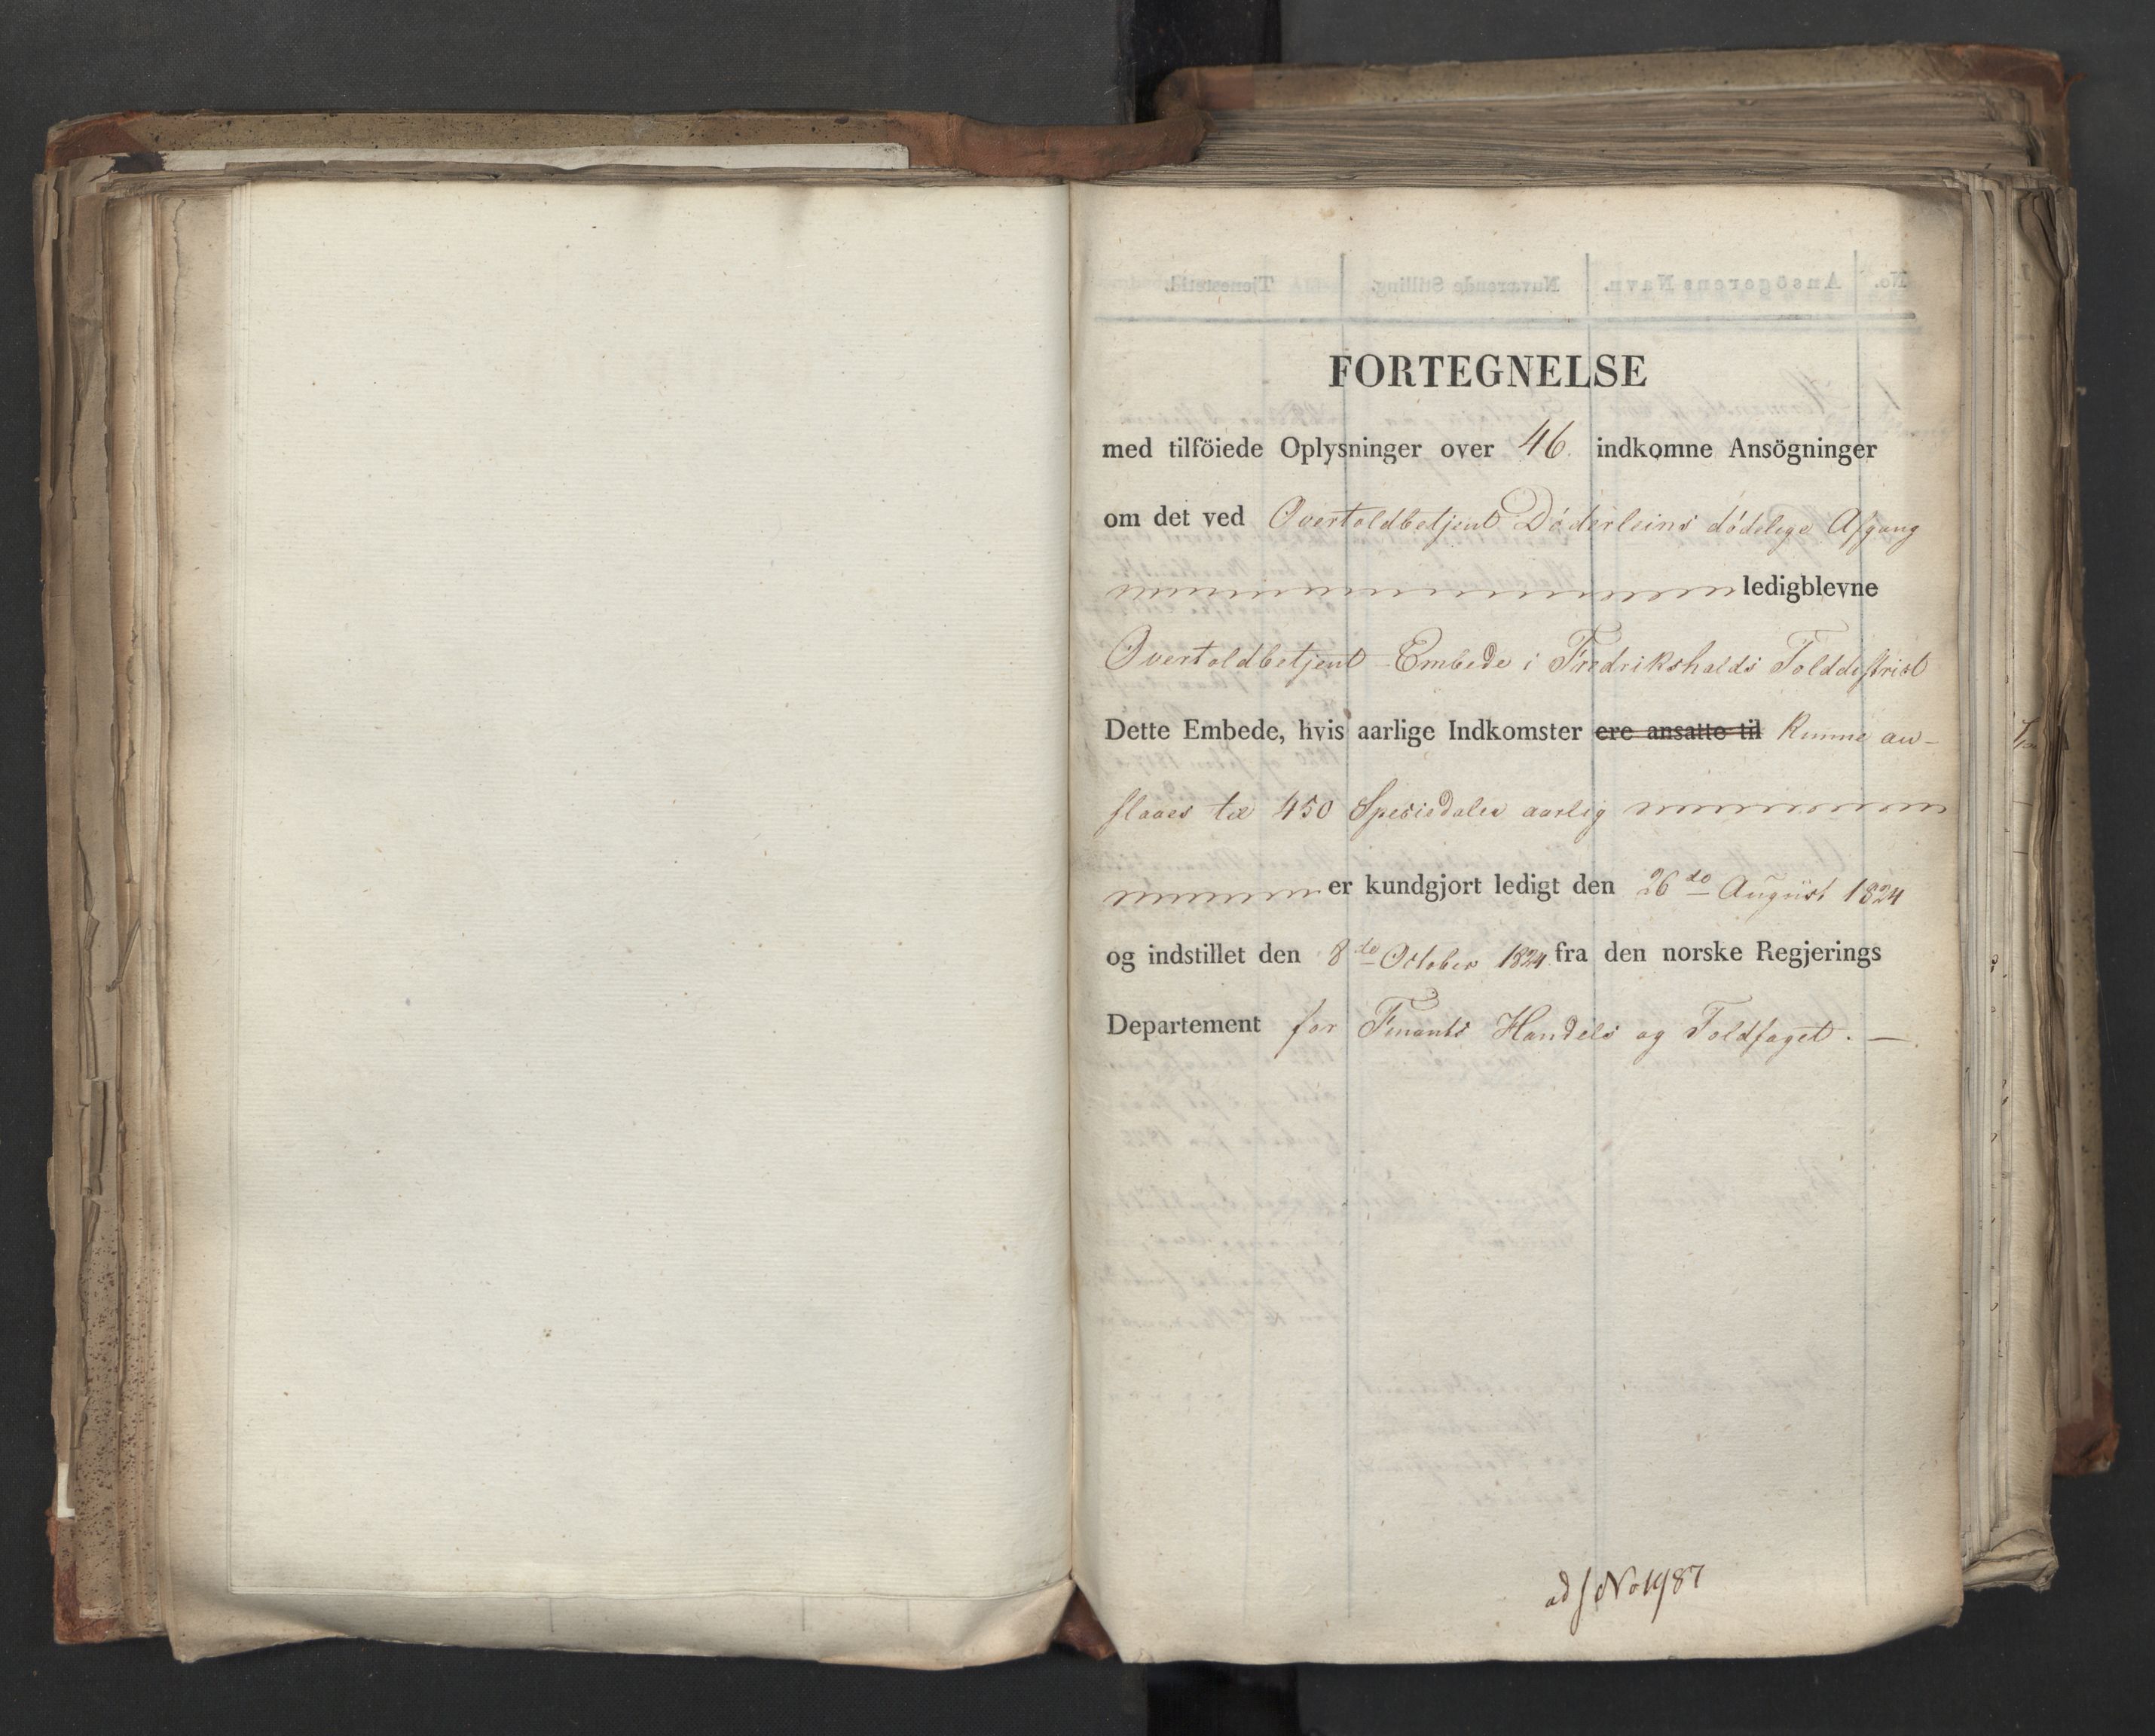 FORTEGNELSE
med tilföiede Oplysninger over 46. indkomne Ansögninger
om det ved Overtoldbetjent Döderleins dödelige Afgang
ledigblevne
Overtoldbetjent Embede i Fredrikshalds Tolddistrict
Dette Embede, hvis aarlige Indkomster ere ansatte til kunne an-
slaaes til 450 Speciedaler aarlig
er kundgjort ledigt den 26de August 1824
og indstillet den 8de October 1824 fra den norske Regjerings
Departement for Finants Handels og Toldfaget. —
ad J No 1987